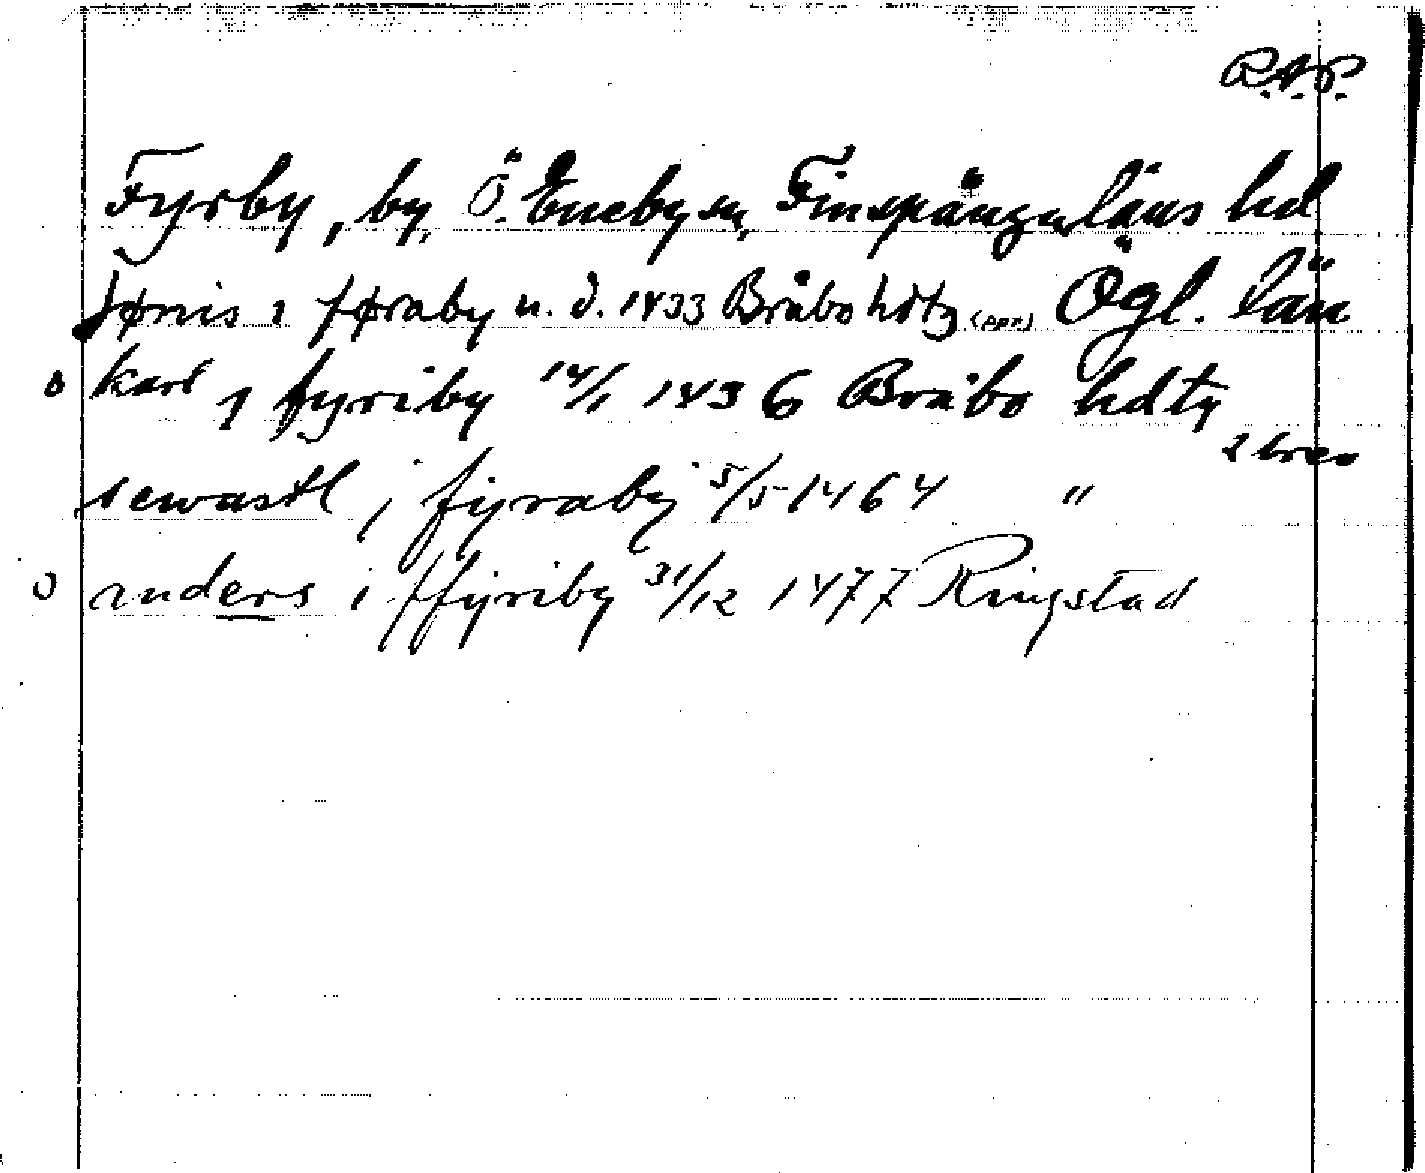 R.A.P.
Fyrby, by, Ö. Eneby sn, Finspånga läns hd
Jønis i føraby u. d. 1433 Bråbo hdtg (ppr) Ögl. län
o karl j fyriby 14/1 1436 Bråbo hdtg
2 brev
sewastl j fyraby 5/5 1464 "
o anders i ffyriby 31/12 1477 Ringstad